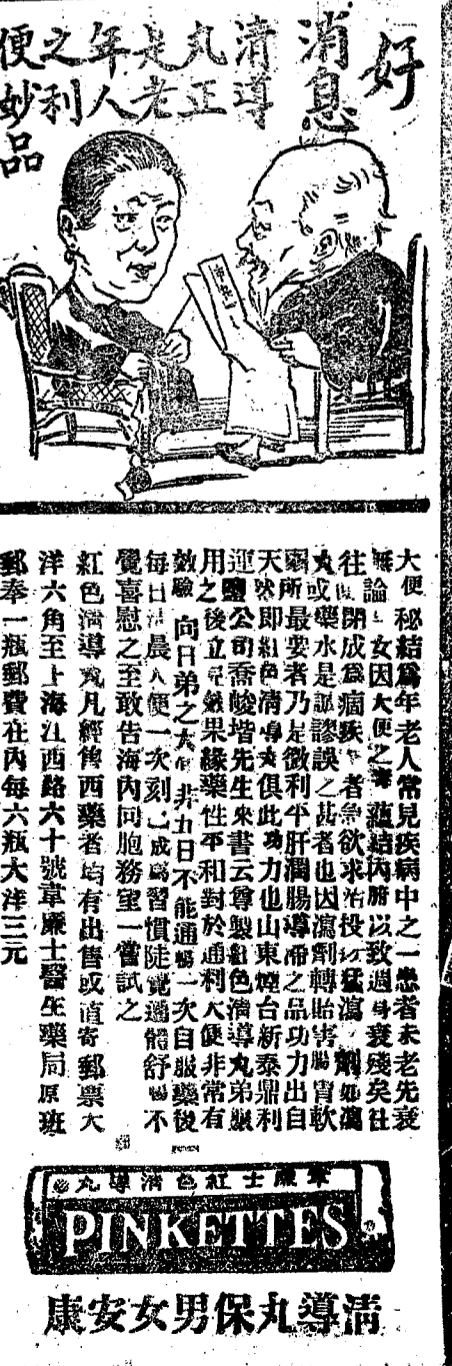 好
消息
清導
丸正
是老
年人
之利
便妙
品
大便秘結爲年老人常見疾病中之一患者未老先衰
無論男女因大便之毒蘊結內腑以致週身衰殘矣往
往因閉成爲痼疾年者急欲求治投以猛瀉之劑如瀉
丸或藥水是誠謬誤之甚者也因瀉劑轉貽害腸胃軟
弱所最要者乃是微利平肝潤腸導滯之品功力出自
天然即紅色清導丸俱此功力也山東煙台新泰鼎利
運鹽公司喬峻堦先生來書云尊製紅色清導丸弟服
用之後立見效果緣藥性平和對於通利大便非常有
效驗 向日弟之大便非五日不能通暢一次自服藥後
每日清晨大便一次刻已成爲習慣陡覺週體舒暢不
覺喜慰之至敢告海內同胞務望一嘗試之
紅色清導丸凡經售西藥者均有出售或直寄郵票大
洋六角至上海江西路六十號韋廉士醫生藥局原班
郵奉一瓶郵費在內每六瓶大洋三元
韋廉士紅色清導丸
PINKETTES
清導丸保男女安康